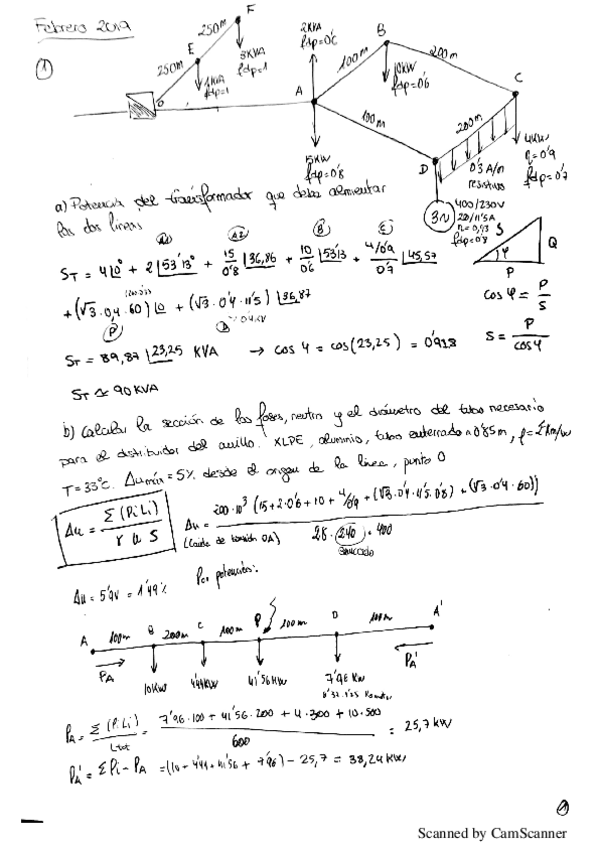 Febrero 2019
1
F
250m
E
250m
3KVA
fdp=1
1KVA
fdp=1
O
2KVA
fdp=0'6
A
15KW
fdp=0'8
100m
B
10KW
fdp=0'6
200m
C
4KW
η=0'9
fdp=0'7
100m
D
200m
0'3 A/m
resistivo
3~
400/230V
fdp=0'8
a) Potencia del transformador que debe alimentar
las dos líneas
S_T = 4|0° + 2|53'13° + 15/0'8 |36,86 + 10/0'6 |53'13 + 4/0'9/0'7 |45,57
+ (√3·0,4·60)|0 + (√3·0'4·11'5)|36,87
S_T = 89,87|23,25 KVA → cos φ = cos(23,25) = 0'918
S_T ≃ 90KVA
S
Q
φ
P
cos φ = P/S
S = P/cos φ
b) Calcular la sección de las fases, neutro y el diámetro del tubo necesario
para el distribuidor del anillo. XLPE, aluminio, tubo enterrado a 0'85m,
T=33°C. Δu mín = 5% desde el origen de la línea, punto O
Δu = Σ(Pi Li)/γ u S
Δu = 200·10³ (15+2·0'6+10+4/0'9+(√3·0'4·11'5·0'8)+(√3·0'4·60))/28·240·400
(caída de tensión OA)
Δu = 5'9V = 1'49%
Por potencias:
A 100m B 200m C 100m P 100m D 100m A'
P_A
10KW
4'44KW
41'56KW
7'96 KW
P_A'
P_A = Σ(Pi Li)/L tot = 7'96·100 + 41'56·200 + 4·300 + 10·500/600 = 25,7 kW
P_A' = ΣPi - P_A = (10 + 4'44 + 41'56 + 7'96) - 25,7 = 38,24 KW
1
Scanned by CamScanner